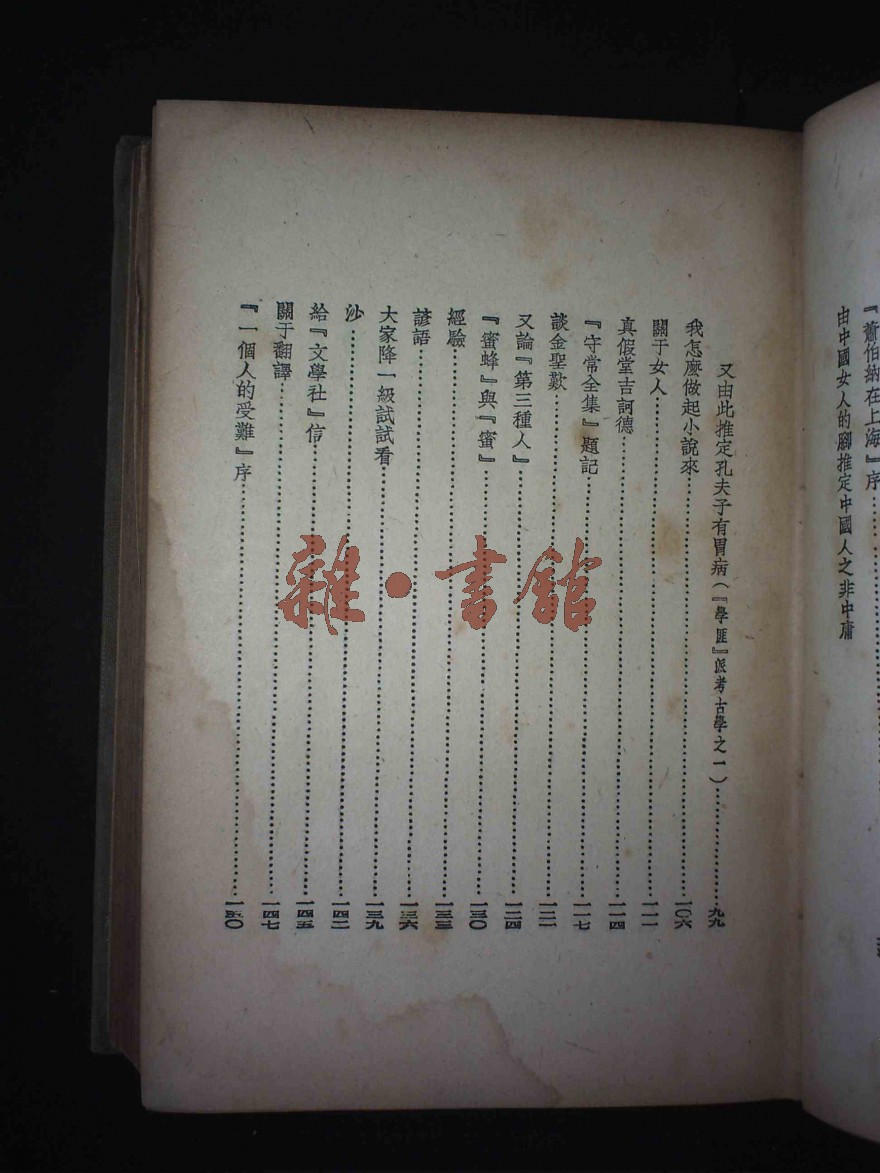 『蕭伯納在上海』序
由中國女人的腳推定中國人之非中庸
又由此推定孔夫子有胃病（『學匪』派考古學之一）……九九
我怎麽做起小說來……一〇六
關于女人……一一一
真假堂吉訶德……一一四
『守常全集』題記……一一七
談金聖歎……一二一
又論『第三種人』……一二四
『蜜蜂』與『蜜』……一三〇
經驗……一三三
諺語……一三六
大家降一級試試看……一三九
沙……一四二
給『文學社』信……一四五
關于翻譯……一四七
『一個人的受難』序……一五〇
雜·書館